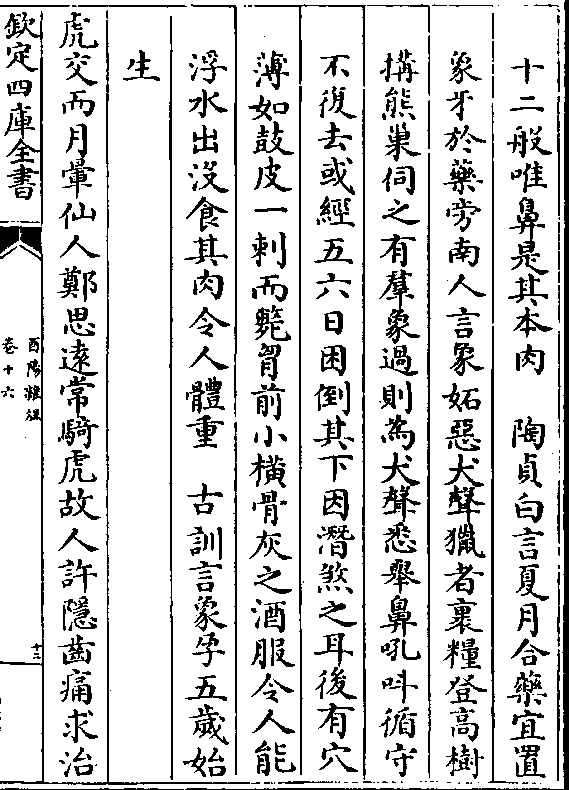 十二般唯鼻是其本肉　陶貞白言夏月合藥宜置
象牙於藥旁南人言象妬惡犬聲獵者裹糧登高樹
構熊巢伺之有羣象過則為犬聲悉舉鼻吼叫循守
不復去或經五六日困倒其下因潛煞之耳後有穴
薄如鼓皮一刺而斃胷前小橫骨灰之酒服令人能
浮水出沒食其肉令人體重　古訓言象孕五歲始
生
虎交而月暈仙人鄭思遠常騎虎故人許隱齒痛求治
欽定四庫全書
酉陽雜俎
卷十六
十三